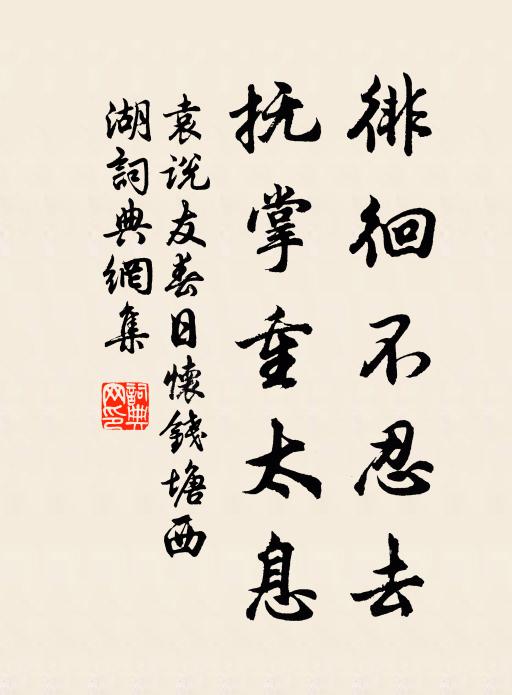 徘徊不忍去
抚掌重太息
袁说友春日懷錢塘西
湖詞典網集
詞典
网印